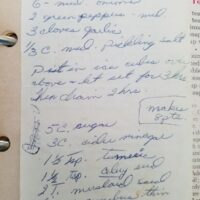 6 - med. onions
2 green peppers - med
3 cloves garlic
1/3 C. med. Pickling salt
Put in ice cubes over
above - let set for 3 hrs
then drain 2 hrs.
makes
8 pts.
5 C. sugar
3 C. cider vinegar
1 1/2 tsp. tumeric
1 1/2 tsp. celery seed
2 T. mustard seed
thin